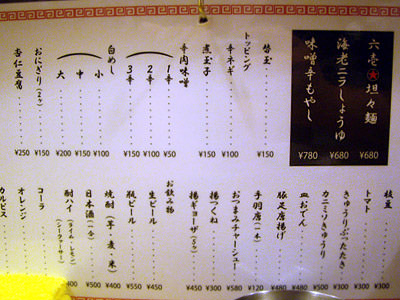 六壱★坦々麺 ¥680
海老ニラしょうゆ ¥680
味噌辛もやし ¥780
替玉 ¥100
トッピング
辛ネギ ¥100
煮玉子 ¥100
辛肉味噌 ¥150
1辛 ¥50
2辛 ¥100
3辛 ¥150
白めし
小 ¥100
中 ¥150
大 ¥200
おにぎり(2ヶ) ¥150
杏仁豆腐 ¥250
枝豆 ¥300
トマト ¥300
きゅうりぶったたき ¥300
カニミソきゅうり
皿おでん
豚足唐揚げ ¥480
手羽唐(一本) ¥120
おつまみチャーシュー ¥580
揚つくね ¥300
揚ギョーザ(5ヶ)
お飲み物
生ビール ¥450
瓶ビール
焼酎(芋・麦・米) ¥400
日本酒(一合)
酎ハイ
コーラ
オレンジ
カルピス